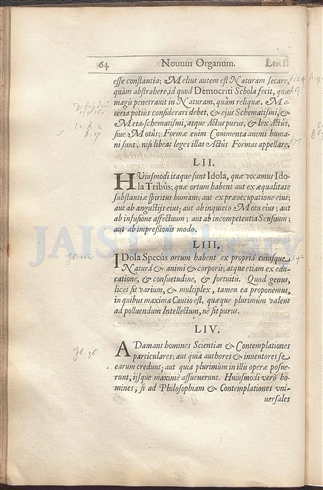 64 Novum Organum.
esse constantia; Melius autem est Naturam secare,
quàm abstrahere; id quod Democriti Schola fecit, quæ
magis penetravit in Naturam, quàm reliquæ. Ma-
teria potiùs considerari debet, & ejus Schematismi, &
Meta-schematismi, atque Actus purus, & lex Actûs,
sive Motûs; Formæ enim Commenta animi huma-
ni sunt, nisi libeat leges illas Actûs Formas appellare.
LII.
HUiusmodi itaque sunt Idola, quæ vocamus Ido-
la Tribûs; quæ ortum habent aut ex æqualitate
substantiæ spiritus humani; aut ex præoccupatione eius;
aut ab angustijs eius; aut ab inquieto Motu eius; aut
ab infusione affectuum; aut ab incompetentia Sensuum;
aut ab impressionis modo.
LIII.
IDola Specûs ortum habent ex propriâ cuiusque
Naturâ & animi & corporis; atque etiam ex edu-
catione, & consuetudine, & fortuitis. Quod genus,
licet sit varium, & multiplex, tamen ea proponemus,
in quibus maxima Cautio est, quæque plurimùm valent
ad polluendum Intellectum, nè sit purus.
LIV.
ADamant homines Scientias & Contemplationes
particulares; aut quia authores & inventores se
earum credunt; aut quia plurimùm in illis operæ posue-
runt, ijsque maximè assueverunt. Huiusmodi verò ho-
mines, si ad Philosophiam & Contemplationes vni-
uersales
JAIST Library